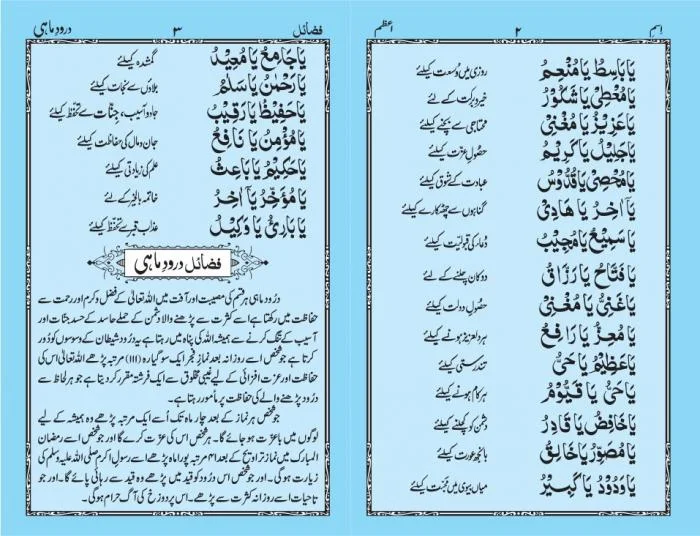 اِسمِ ۲ اعظم
یَا بَاسِطُ یَا مُنْعِمُ روزی میں وسعت کیلئے
یَا مُعْطِیْ یَا شَکُوْرُ خیر و برکت کے لئے
یَا عَزِیْزُ یَا مُغْنِیْ محتاجی سے بچنے کیلئے
یَا جَلِیْلُ یَا کَرِیْمُ حصولِ عزت کیلئے
یَا مُحْصِیْ یَا قُدُّوْسُ عبادت کے شوق کیلئے
یَا اٰخِرُ یَا ھَادِیْ گناہوں سے چھٹکارے کیلئے
یَا سَمِیْعُ یَا مُجِیْبُ دُعا کی قبولیت کیلئے
یَا فَتَّاحُ یَا رَزَّاقُ دوکان چلنے کے لئے
یَا غَنِیُّ یَا مُغْنِیْ حصولِ دولت کیلئے
یَا مُعِزُّ یَا رَافِعُ ہر دلعزیز ہونے کیلئے
یَا عَظِیْمُ یَا حَیُّ تندرستی کیلئے
یَا حَیُّ یَا قَیُّوْمُ ہر کام ہونے کیلئے
یَا خَافِضُ یَا قَادِرُ دشمن کو کچلنے کیلئے
یَا مُصَوِّرُ یَا خَالِقُ بانجھ عورت کیلئے
یَا وَدُوْدُ یَا کَبِیْرُ میاں بیوی میں محبت کیلئے
فضائل ۳ درودِ ماہی
یَا جَامِعُ یَا مُعِیْدُ گمشدہ کیلئے
یَا رَحْمٰنُ یَا سَلٰمُ بلاؤں سے نجات کیلئے
یَا حَفِیْظُ یَا رَقِیْبُ جادو آسیب، جنّات سے تحفظ کیلئے
یَا مُؤْمِنُ یَا نَافِعُ جان و مال کی حفاظت کیلئے
یَا حَکِیْمُ یَا بَاعِثُ علم کی زیادتی کیلئے
یَا مُؤَخِّرُ یَا اٰخِرُ خاتمہ بالخیر کے لئے
یَا بَارِئُ یَا وَکِیْلُ عذابِ قبر سے تحفظ کیلئے
فضائل درودِ ماہی
درُود ماہی ہر قسم کی مصیبت اور آفت میں اللہ تعالیٰ کے فضل و کرم اور رحمت سے
حفاظت میں رکھتا ہے اسے کثرت سے پڑھنے والا دشمن کے حملے حاسد کے حسد جنات اور
آسیب کے تنگ کرنے سے ہمیشہ اللہ کی پناہ میں رہتا ہے یہ درُود شیطان کے وسوسوں کو دُور
کرتا ہے جو شخص اسے روزانہ بعد نمازِ فجر ایک سو گیارہ (۱۱۱) مرتبہ پڑھے اللہ تعالیٰ اس کی
حفاظت اور عزت افزائی کے لیے غیبی مخلوق سے ایک فرشتہ مقرر کر دیتا ہے جو ہر لحاظ سے
درُود پڑھنے والے کی حفاظت پر مامور رہتا ہے۔
جو شخص ہر نماز کے بعد چار ماہ تک اُسے ایک مرتبہ پڑھے وہ ہمیشہ کے لیے
لوگوں میں باعزت ہو جائے گا۔ ہر شخص اس کی عزت کرے گا اور جو شخص اسے رمضان
المبارک میں نمازِ تراویح کے بعد ۴۱ مرتبہ پورا ماہ پڑھے اسے رسولِ اکرم صلی اللہ علیہ وسلم کی
زیارت ہو گی۔ اور جو شخص اس درُود کو قید میں پڑھے وہ قید سے رہائی پائے گا۔ اور جو
تاحیات اسے روزانہ کثرت سے پڑھے۔ اس پر دوزخ کی آگ حرام ہو گی۔